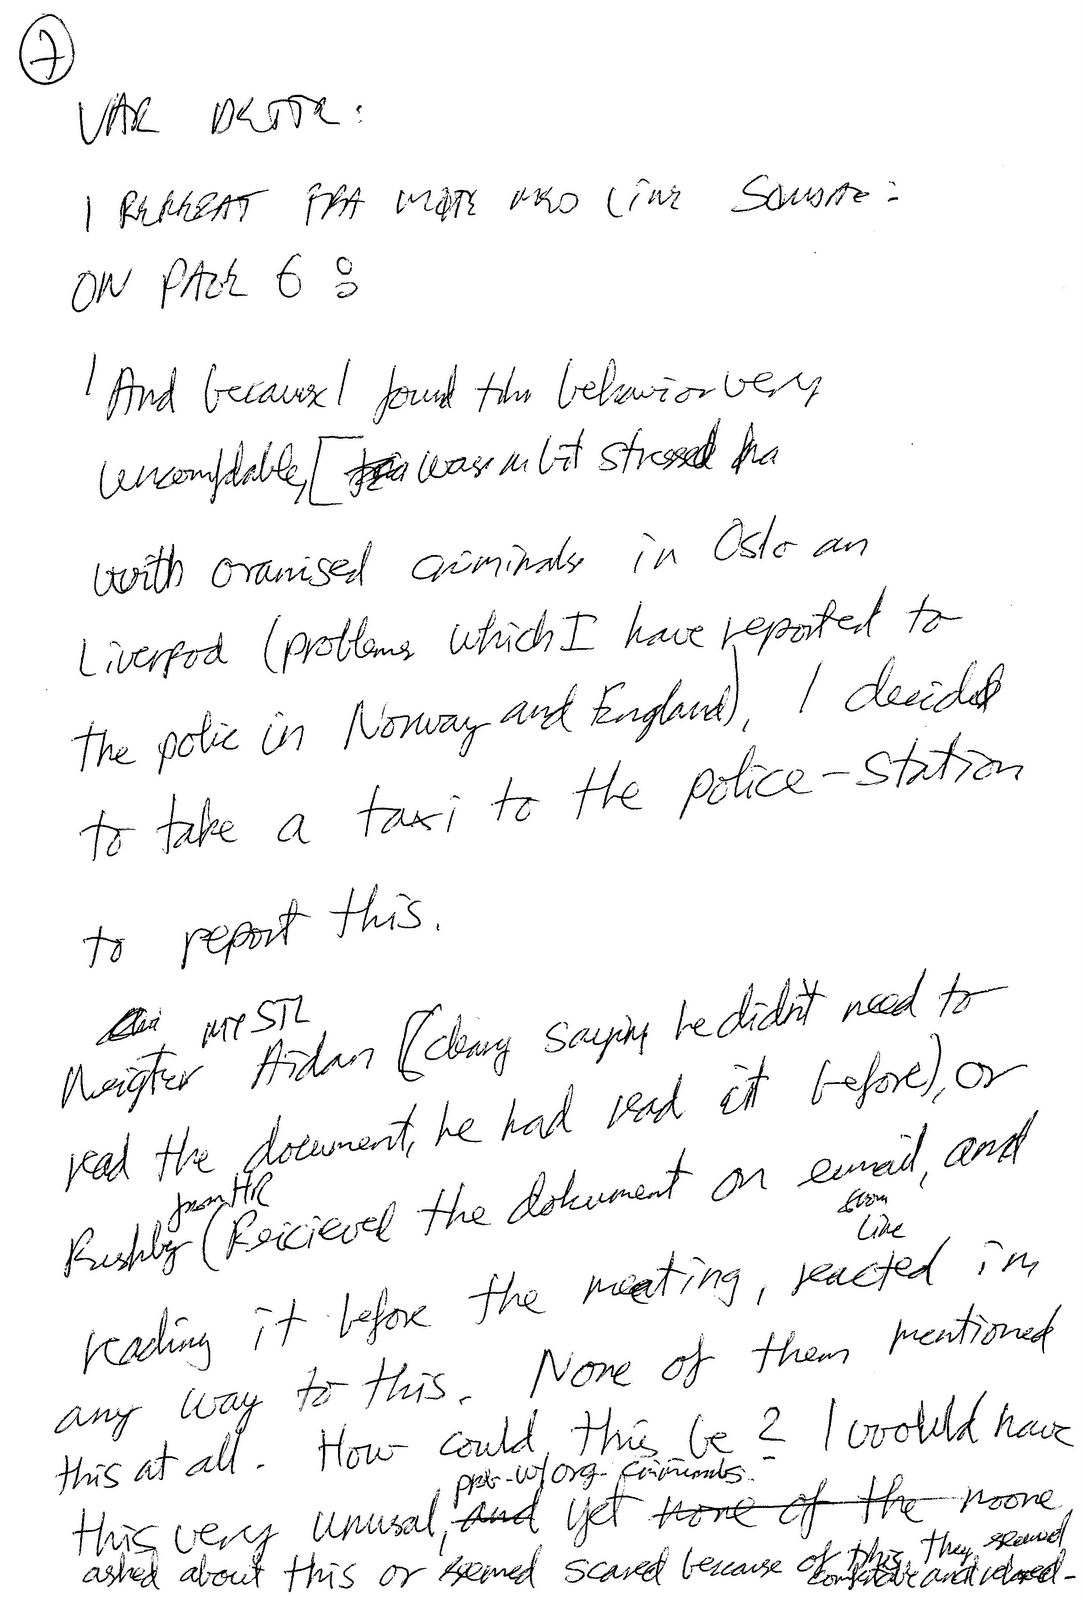 7
VAR DETTE:
I REPEAT FRA MØTE MED LINE
ON PAGE 6:
'And because I found the behavior very
uncomfdable, [ was a bit stressed
with oranised criminals in Oslo an
Liverpod (problems which I have reported to
the polic in Norway and England), I decided
to take a taxi to the police-station
to report this.
MY STL
Neigter Aidan (cleary saying he didn't need to
read the document, he had read it before), or
from HR
Rushby (Reicievel the dokument on email, and
from
Line
reading it before the meeting, reacted in
any way to this. None of them mentioned
this at all. How could this be? I woould have
prob. w/org. criminals.
this very unusual, and yet none of the noone
asked about this or seemed scared because of this, they seemed
and relaxed.